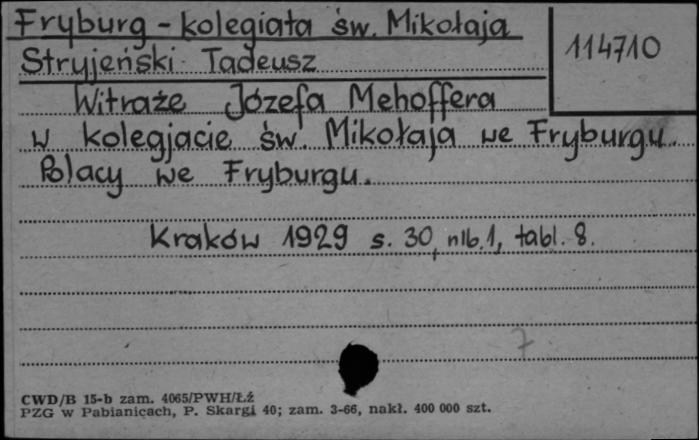 Fryburg - kolegiata św. Mikołaja
114710
Stryjeński Tadeusz
Witraże Józefa Mehoffera
w kolegjacie św. Mikołaja we Fryburgu.
Polacy we Fryburgu.
Kraków 1929 s. 30, nlb. 1, tabl. 8.
7
CWD/B 15-b zam. 4065/PWH/Łż
PZG w Pabianicach, P. Skargi 40; zam. 3-66, nakł. 400 000 szt.